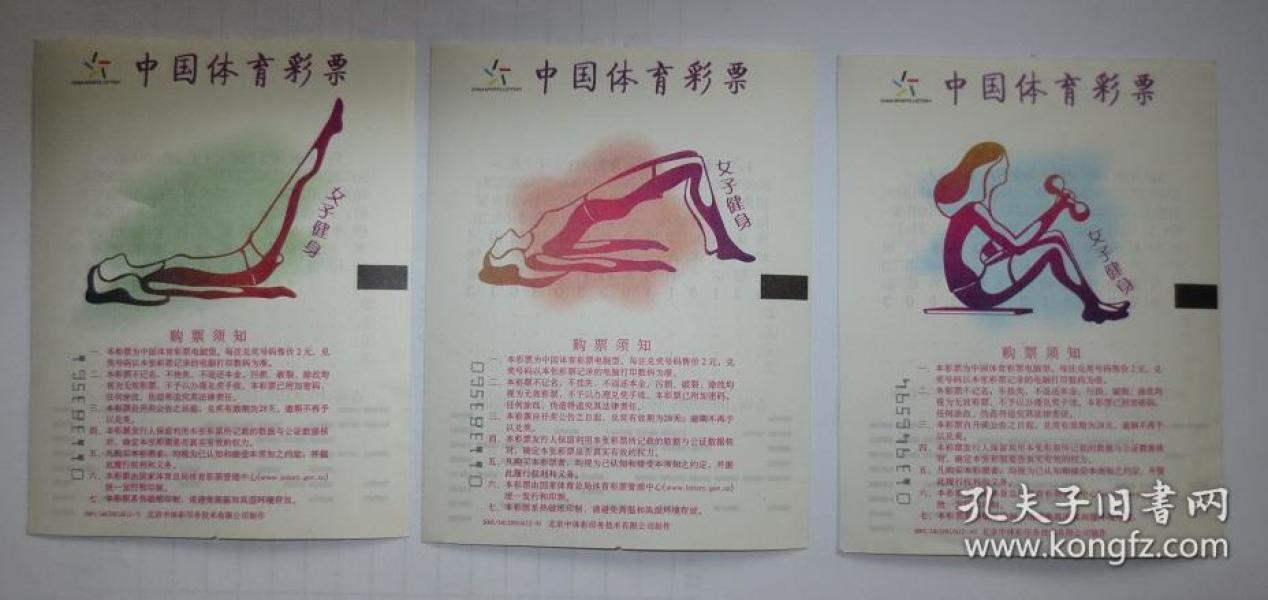 中国体育彩票
CHINA SPORTS LOTTERY
女子健身
购票须知
一、本彩票为中国体育彩票电脑型。每注兑奖号码售价2元,兑
奖号码以本张彩票记录的电脑打印数码为准。
二、本彩票不记名,不挂失,不返还本金,污损、破裂、涂改均
视为无效彩票,不予以办理兑奖手续。本彩票已附加密码,
任何涂改、伪造将追究其法律责任。
三、本彩票自开奖公告之日起,兑奖有效期为28天,逾期不再予
以兑奖。
四、本彩票发行人保留利用本张彩票所记载的数据与公证数据核
对,确定本张彩票是否真实有效的权力。
五、凡购买本彩票者,均视为已认知和接受本须知之约定,并据
此履行权利和义务。
六、本彩票由国家体育总局体育彩票管理中心(www.lottery.gov.cn)
统一发行和印制。
七、本彩票系热敏纸印制,请避免高温和高湿环境存放。
北京中体彩印务技术有限公司制作
中国体育彩票
CHINA SPORTS LOTTERY
女子健身
购票须知
一、本彩票为中国体育彩票电脑型。每注兑奖号码售价2元,兑
奖号码以本张彩票记录的电脑打印数码为准。
二、本彩票不记名,不挂失,不返还本金,污损、破裂、涂改均
视为无效彩票,不予以办理兑奖手续。本彩票已附加密码,
任何涂改、伪造将追究其法律责任。
三、本彩票自开奖公告之日起,兑奖有效期为28天,逾期不再予
以兑奖。
四、本彩票发行人保留利用本张彩票所记载的数据与公证数据核
对,确定本张彩票是否真实有效的权力。
五、凡购买本彩票者,均视为已认知和接受本须知之约定,并据
此履行权利和义务。
六、本彩票由国家体育总局体育彩票管理中心(www.lottery.gov.cn)
统一发行和印制。
七、本彩票系热敏纸印制,请避免高温和高湿环境存放。
北京中体彩印务技术有限公司制作
中国体育彩票
CHINA SPORTS LOTTERY
女子健身
购票须知
一、本彩票为中国体育彩票电脑型。每注兑奖号码售价2元,兑
奖号码以本张彩票记录的电脑打印数码为准。
二、本彩票不记名,不挂失,不返还本金,污损、破裂、涂改均
视为无效彩票,不予以办理兑奖手续。本彩票已附加密码,
任何涂改、伪造将追究其法律责任。
三、本彩票自开奖公告之日起,兑奖有效期为28天,逾期不再予
以兑奖。
四、本彩票发行人保留利用本张彩票所记载的数据与公证数据核
对,确定本张彩票是否真实有效的权力。
五、凡购买本彩票者,均视为已认知和接受本须知之约定,并据
此履行权利和义务。
六、本彩票由国家体育
统一发行和印制。
七、
孔夫子旧书网
www.kongfz.com